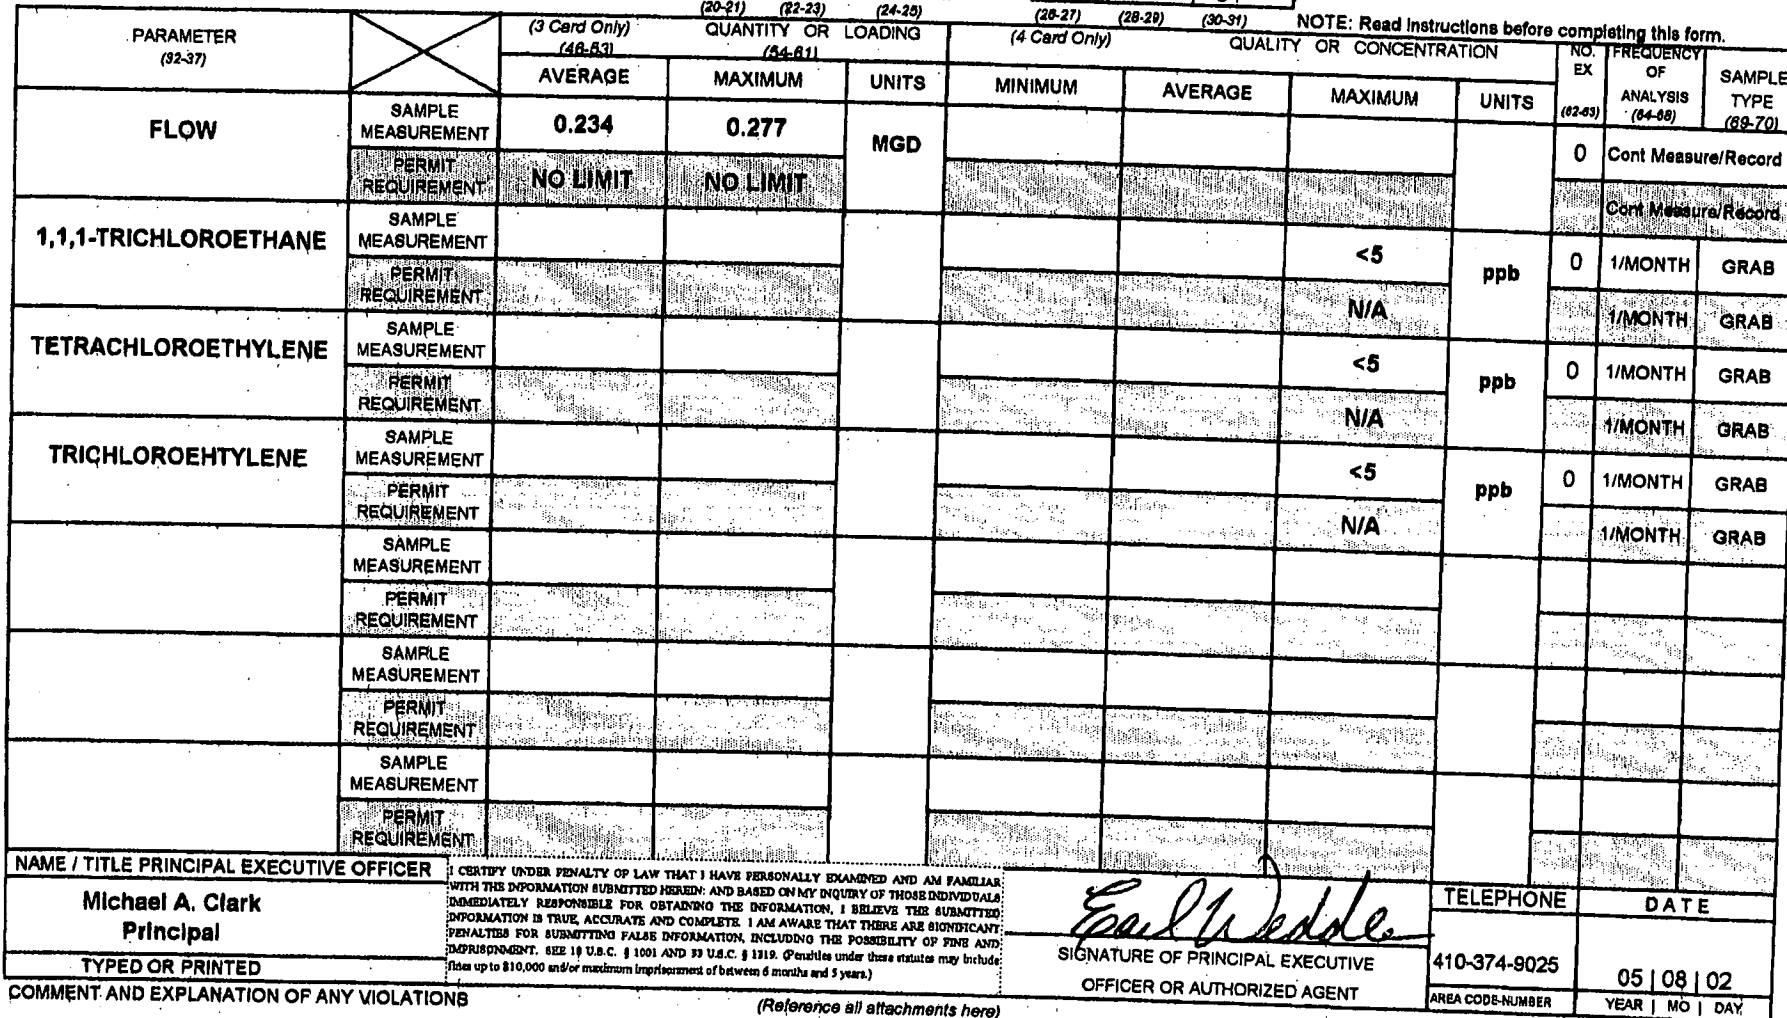 (20-21) (22-23) (24-25) (26-27) (28-29) (30-31) NOTE: Read instructions before completing this form.
PARAMETER
(32-37)
(3 Card Only) QUANTITY OR LOADING
(46-53) (54-61)
(4 Card Only) QUALITY OR CONCENTRATION
NO.
EX
(62-63)
FREQUENCY
OF
ANALYSIS
(64-68)
SAMPLE
TYPE
(69-70)
AVERAGE MAXIMUM UNITS MINIMUM AVERAGE MAXIMUM UNITS
FLOW
SAMPLE
MEASUREMENT
0.234 0.277 MGD 0 Cont Measure/Record
PERMIT
REQUIREMENT
NO LIMIT NO LIMIT Cont Measure/Record
1,1,1-TRICHLOROETHANE
SAMPLE
MEASUREMENT
<5 ppb 0 1/MONTH GRAB
PERMIT
REQUIREMENT
N/A 1/MONTH GRAB
TETRACHLOROETHYLENE
SAMPLE
MEASUREMENT
<5 ppb 0 1/MONTH GRAB
PERMIT
REQUIREMENT
N/A 1/MONTH GRAB
TRICHLOROEHTYLENE
SAMPLE
MEASUREMENT
<5 ppb 0 1/MONTH GRAB
PERMIT
REQUIREMENT
N/A 1/MONTH GRAB
SAMPLE
MEASUREMENT
PERMIT
REQUIREMENT
SAMPLE
MEASUREMENT
PERMIT
REQUIREMENT
SAMPLE
MEASUREMENT
PERMIT
REQUIREMENT
NAME / TITLE PRINCIPAL EXECUTIVE OFFICER
Michael A. Clark
Principal
TYPED OR PRINTED
I CERTIFY UNDER PENALTY OF LAW THAT I HAVE PERSONALLY EXAMINED AND AM FAMILIAR
WITH THE INFORMATION SUBMITTED HEREIN: AND BASED ON MY INQUIRY OF THOSE INDIVIDUALS
IMMEDIATELY RESPONSIBLE FOR OBTAINING THE INFORMATION, I BELIEVE THE SUBMITTED
INFORMATION IS TRUE, ACCURATE AND COMPLETE. I AM AWARE THAT THERE ARE SIGNIFICANT
PENALTIES FOR SUBMITTING FALSE INFORMATION, INCLUDING THE POSSIBILITY OF FINE AND
IMPRISONMENT. SEE 18 U.S.C. § 1001 AND 33 U.S.C. § 1319. (Penalties under these statutes may include
fines up to $10,000 and/or maximum imprisonment of between 6 months and 5 years.)
Earl Weddle
SIGNATURE OF PRINCIPAL EXECUTIVE
OFFICER OR AUTHORIZED AGENT
TELEPHONE
410-374-9025
AREA CODE-NUMBER
DATE
05 | 08 | 02
YEAR | MO | DAY
COMMENT AND EXPLANATION OF ANY VIOLATIONS
(Reference all attachments here)